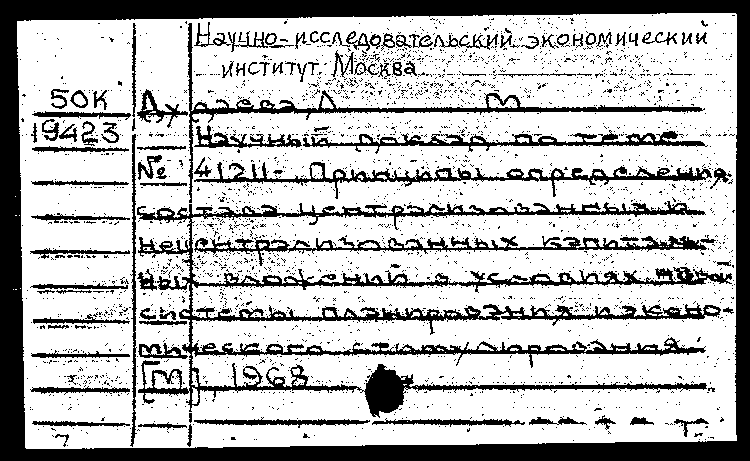 Научно-исследовательский экономический
институт. Москва
50К
19423
Научный доклад по теме
№ 41211- „Принципы определения
состава централизованных и
нецентрализованных капиталь-
ных вложений в условиях новой
системы планирования и эконо-
мического стимулирования.
[М], 1968
7